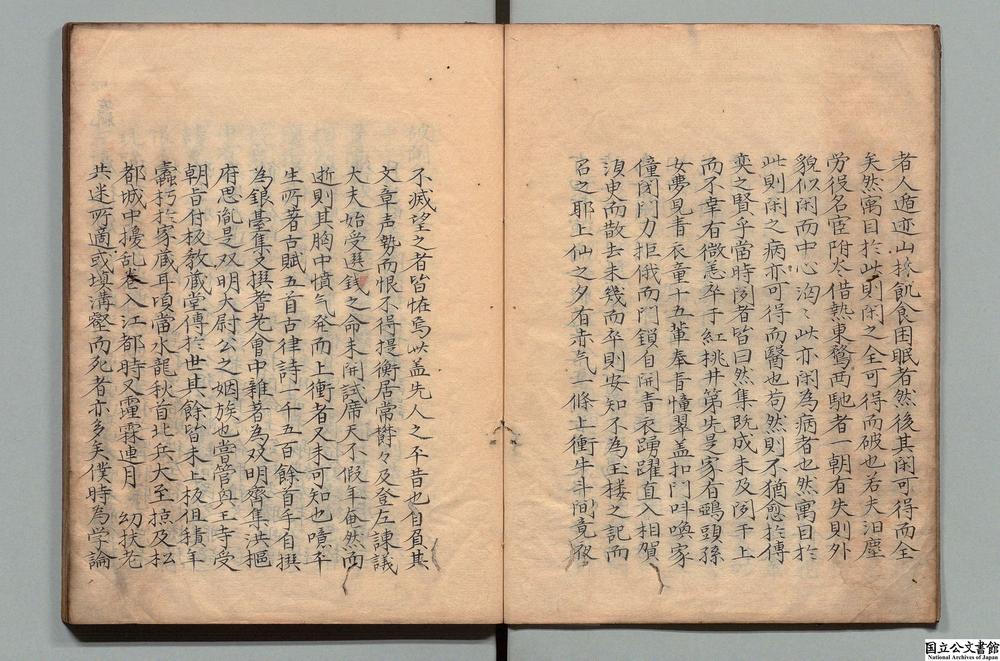 者人遁迹山林飢食困眠者然後其閑可得而全
矣然寓目於此則閑之全可得而破也若夫汨塵
労役名宦附炎借熱東騖西馳者一朝有失則外
貌似閑而中心洶〻此亦閑為病者也然寓目於
此則閑之病亦可得而醫也苟然則不猶愈於博
奕之賢乎當時閱者皆曰然集既成未及閱于上
而不幸有微恙卒于紅桃井第先是家有鵶頭孫
女夢見青衣童十五輩奉青幢翠盖扣門叫喚家
僮閉門力拒俄而門鎖自開青衣踴躍直入相賀
須臾而散去未幾而卒則安知不為玉楼之記而
召之耶上仙之夕有赤气一條上衝牛斗間竟夜
不滅望之者皆恠焉此盖先人之平昔也自負其
文章声勢而恨不得提衡居常欝々及登左諫議
大夫始受選錢之命未開試席天不假年奄然而
逝則其胸中憤气発而上衝者又未可知也噫平
生所著古賦五首古律詩一千五百餘首手自撰
為銀臺集又撰耆老會中雜著為双明齊集洪樞
府思胤是双明大尉公之姻族也嘗管興王寺受
朝旨付板教蔵堂傳於世其餘皆未上板徂積年
蠹朽於家蔵耳頃當水龍秋首北兵大至掠及松
都城中擾乱巻入江都時又霾霖連月 幼扶老
共迷所適或填溝壑而死者亦多矣僕時為学論
国立公文書館
National Archives of Japan